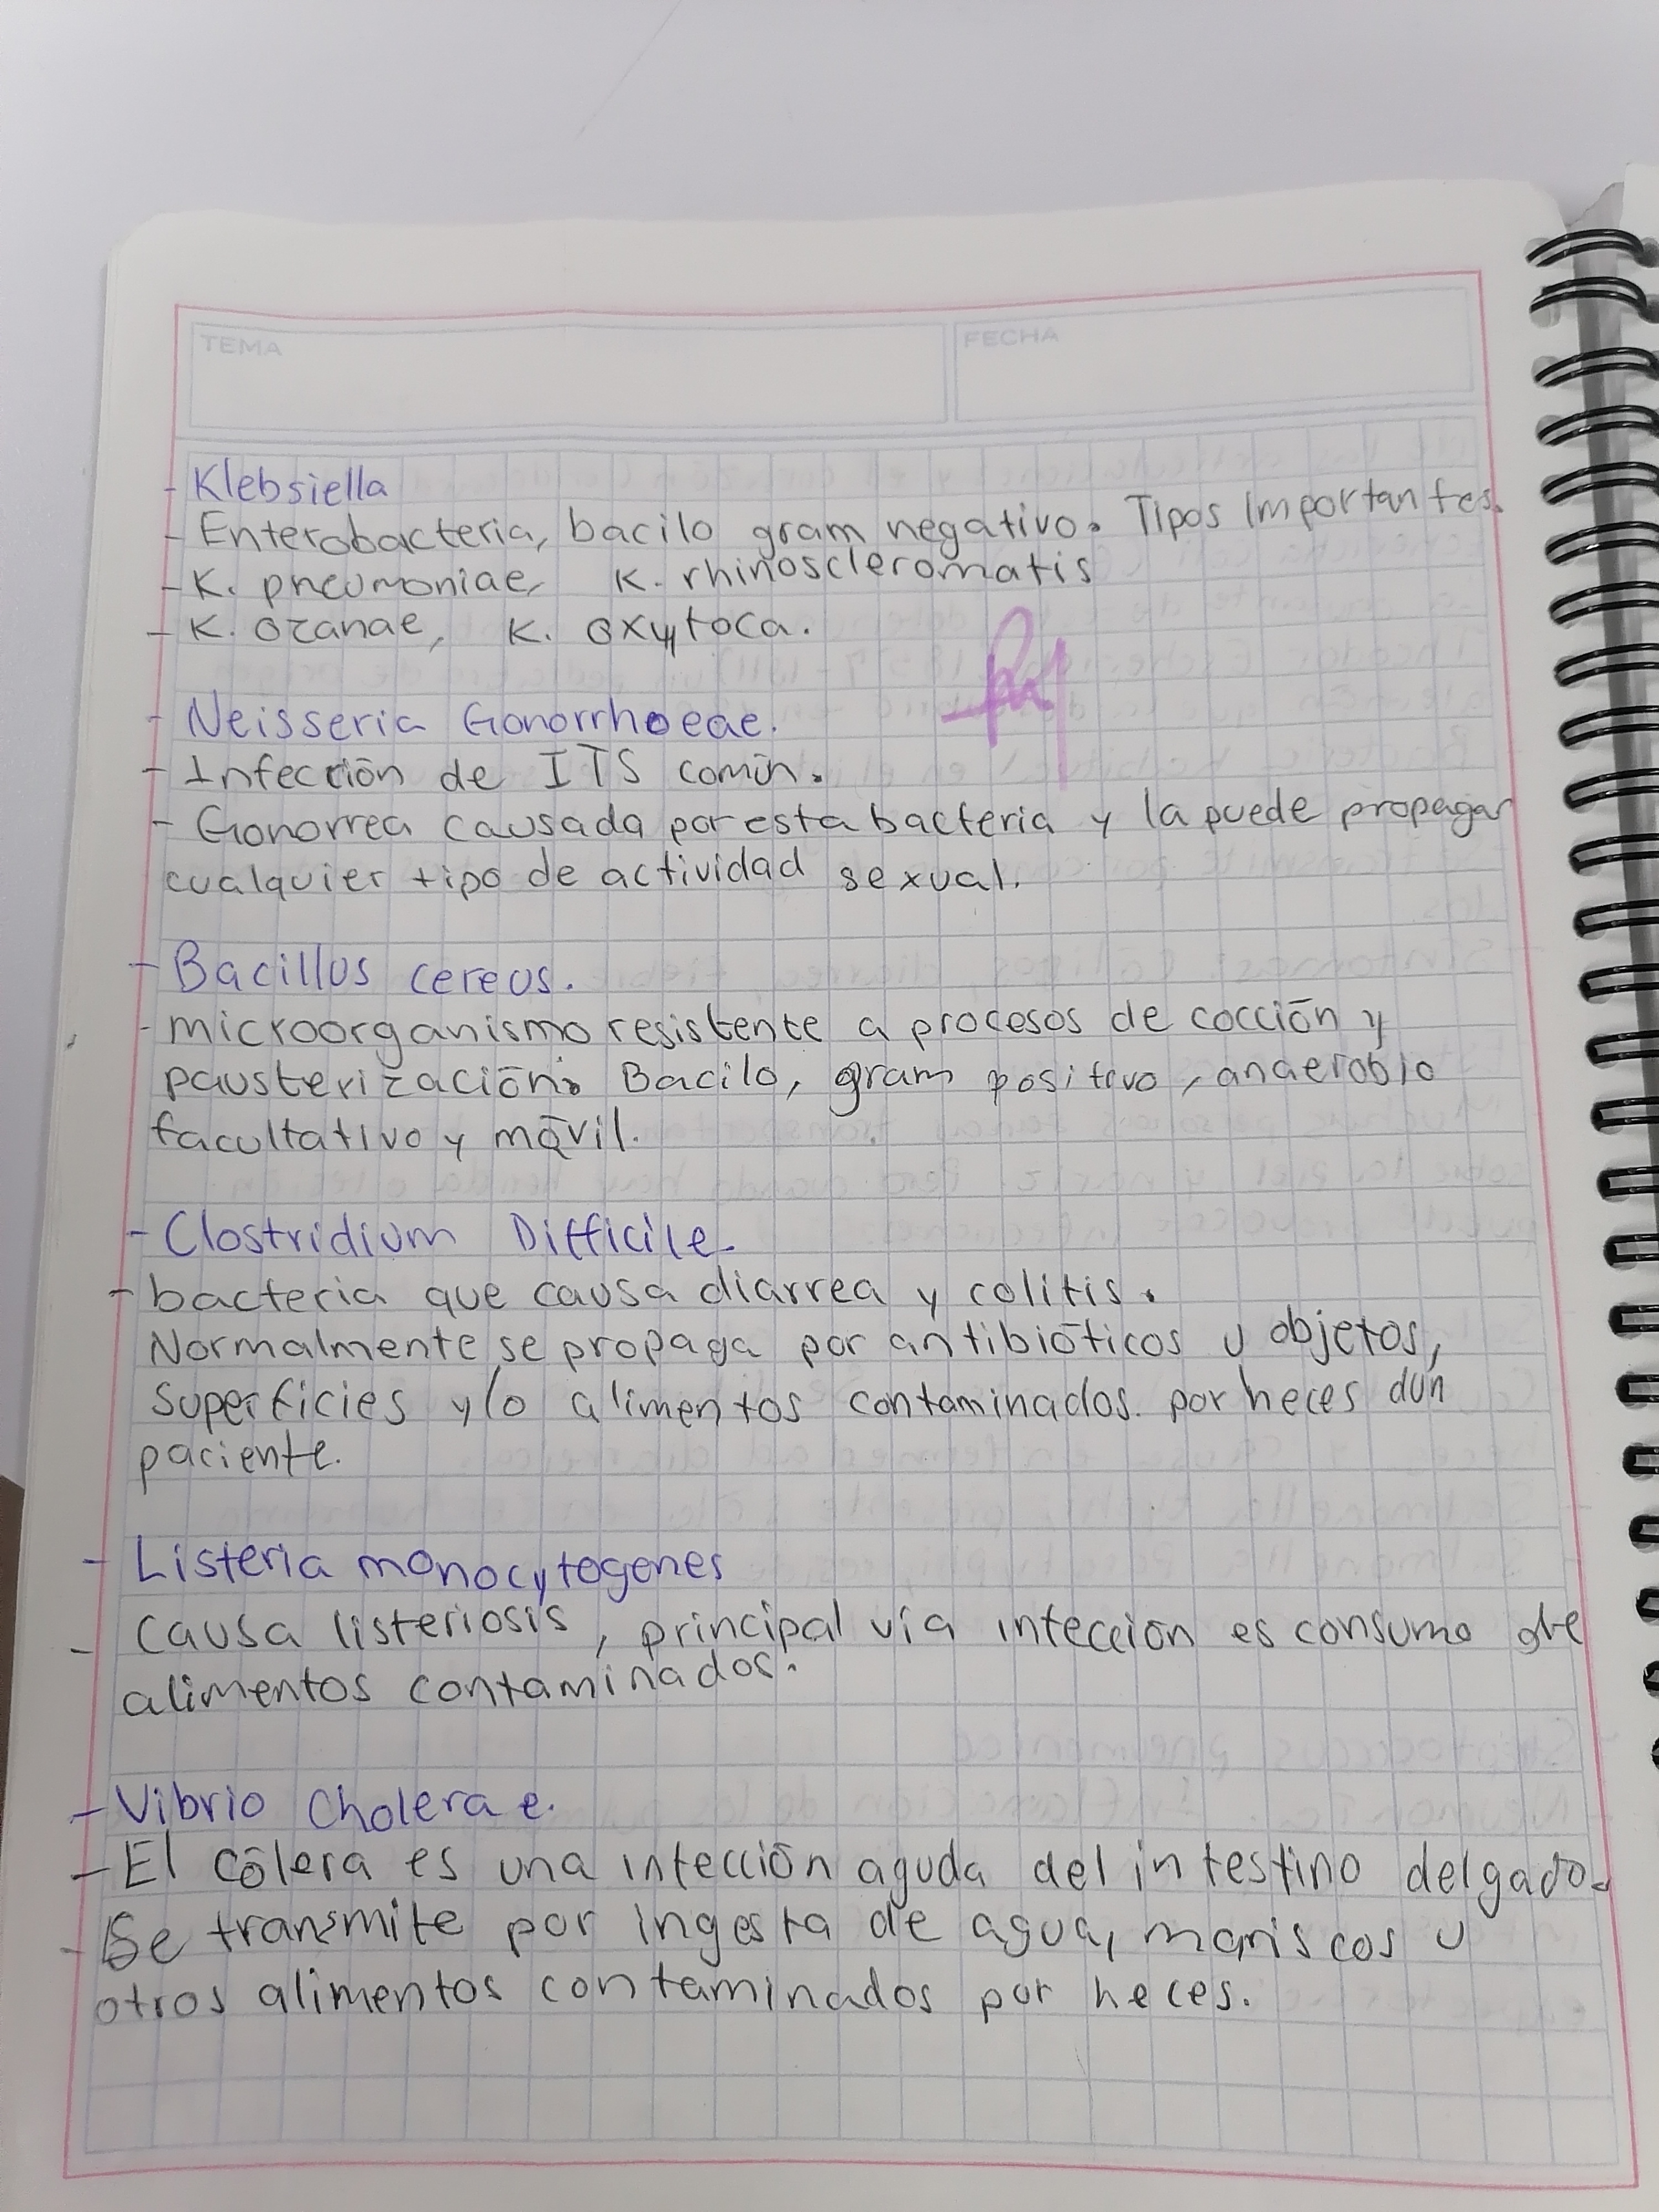 TEMA
FECHA
- Klebsiella
- Enterobacteria, bacilo gram negativo. Tipos Importantes.
- K. pneumoniae, K. rhinoscleromatis
- K. ozanae, K. oxytoca.
- Neisseria Gonorrhoeae.
- Infección de ITS común.
- Gonorrea causada por esta bacteria y la puede propagar
cualquier tipo de actividad sexual.
- Bacillus cereus.
- microorganismo resistente a procesos de cocción y
pausterización. Bacilo, gram positivo, anaerobio
facultativo y móvil.
- Clostridium Difficile.
- bacteria que causa diarrea y colitis.
Normalmente se propaga por antibióticos u objetos,
superficies y/o alimentos contaminados. por heces dun
paciente.
- Listeria monocytogenes
- Causa listeriosis, principal vía infección es consumo de
alimentos contaminados.
- Vibrio Cholerae.
- El cólera es una infección aguda del intestino delgado.
- Se transmite por ingesta de agua, mariscos u
otros alimentos contaminados por heces.